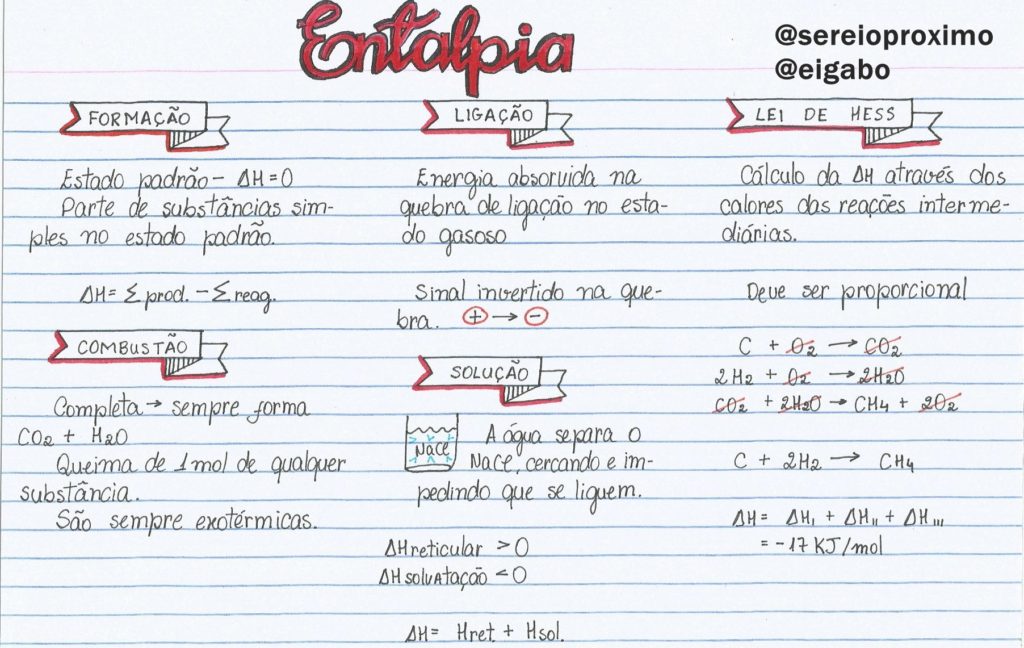 Entalpia
@sereioproximo
@eigabo
FORMAÇÃO
Estado padrão - ΔH = 0
Parte de substâncias sim-
ples no estado padrão.
ΔH = Σ prod. - Σ reag.
COMBUSTÃO
Completa → sempre forma
CO2 + H2O
Queima de 1 mol de qualquer
substância.
São sempre exotérmicas.
LIGAÇÃO
Energia absorvida na
quebra de ligação no esta-
do gasoso
Sinal invertido na que-
bra. + → -
SOLUÇÃO
NaCl
A água separa o
NaCl, cercando e im-
pedindo que se liguem.
ΔHreticular > 0
ΔHsolvatação < 0
ΔH = Hret. + Hsol.
LEI DE HESS
Cálculo da ΔH através dos
calores das reações interme-
diárias.
Deve ser proporcional
C + O2 → CO2
2H2 + O2 → 2H2O
CO2 + 2H2O → CH4 + 2O2
C + 2H2 → CH4
ΔH = ΔHI + ΔHII + ΔHIII
= -17 KJ/mol